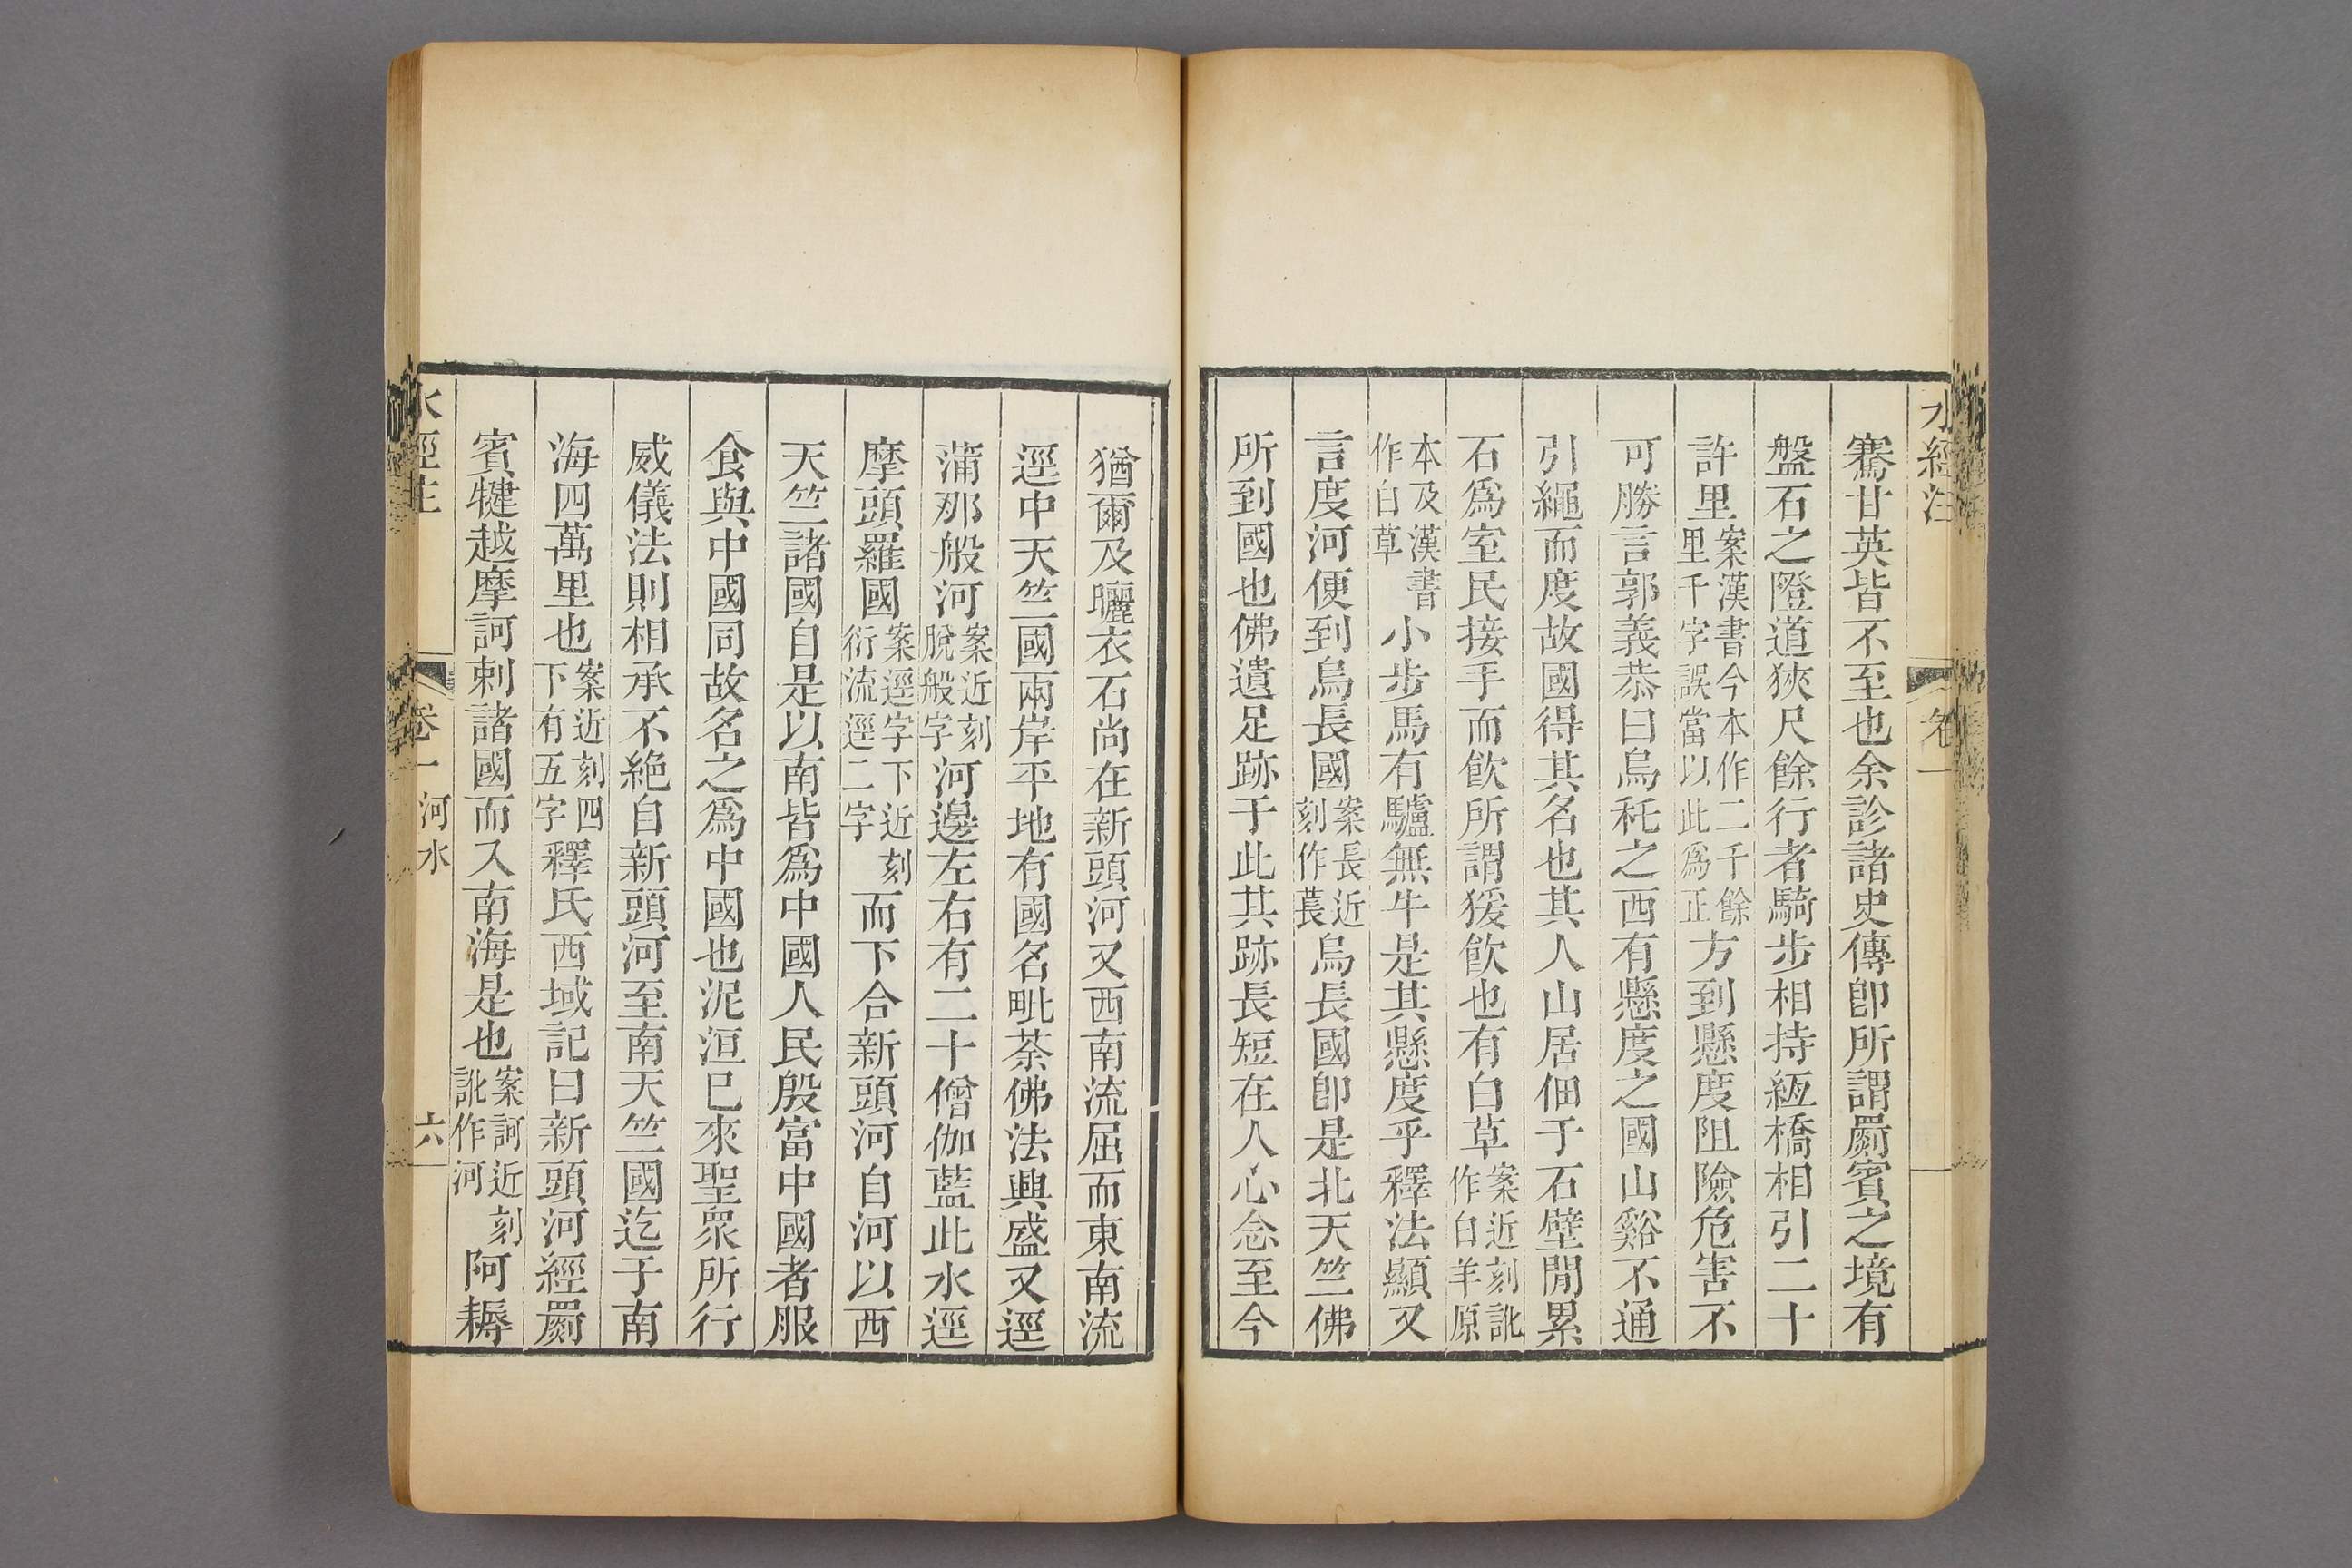 水經注 卷一
騫甘英皆不至也余診諸史傳卽所謂罽賓之境有
盤石之隥道狹尺餘行者騎步相持絙橋相引二十
許里案漢書今本作二千餘里千字誤當以此爲正方到懸度阻險危害不
可勝言郭義恭曰烏秅之西有懸度之國山谿不通
引繩而度故國得其名也其人山居佃于石壁閒累
石爲室民接手而飮所謂猨飮也有白草案近刻訛作白羊原
本及漢書作白草小步馬有驢無牛是其懸度乎釋法顯又
言度河便到烏長國案長近刻作萇烏長國卽是北天竺佛
所到國也佛遺足跡于此其跡長短在人心念至今
猶爾及曬衣石尚在新頭河又西南流屈而東南流
逕中天竺國兩岸平地有國名毗荼佛法興盛又逕
蒲那般河案近刻脫般字河邊左右有二十僧伽藍此水逕
摩頭羅國案逕字下近刻衍流逕二字而下合新頭河自河以西
天竺諸國自是以南皆爲中國人民殷富中國者服
食與中國同故名之爲中國也泥洹已來聖衆所行
威儀法則相承不絶自新頭河至南天竺國迄于南
海四萬里也案近刻四下有五字釋氏西域記曰新頭河經罽
賓犍越摩訶剌諸國而入南海是也案訶近刻訛作河阿耨
水經注 卷一 河水 六